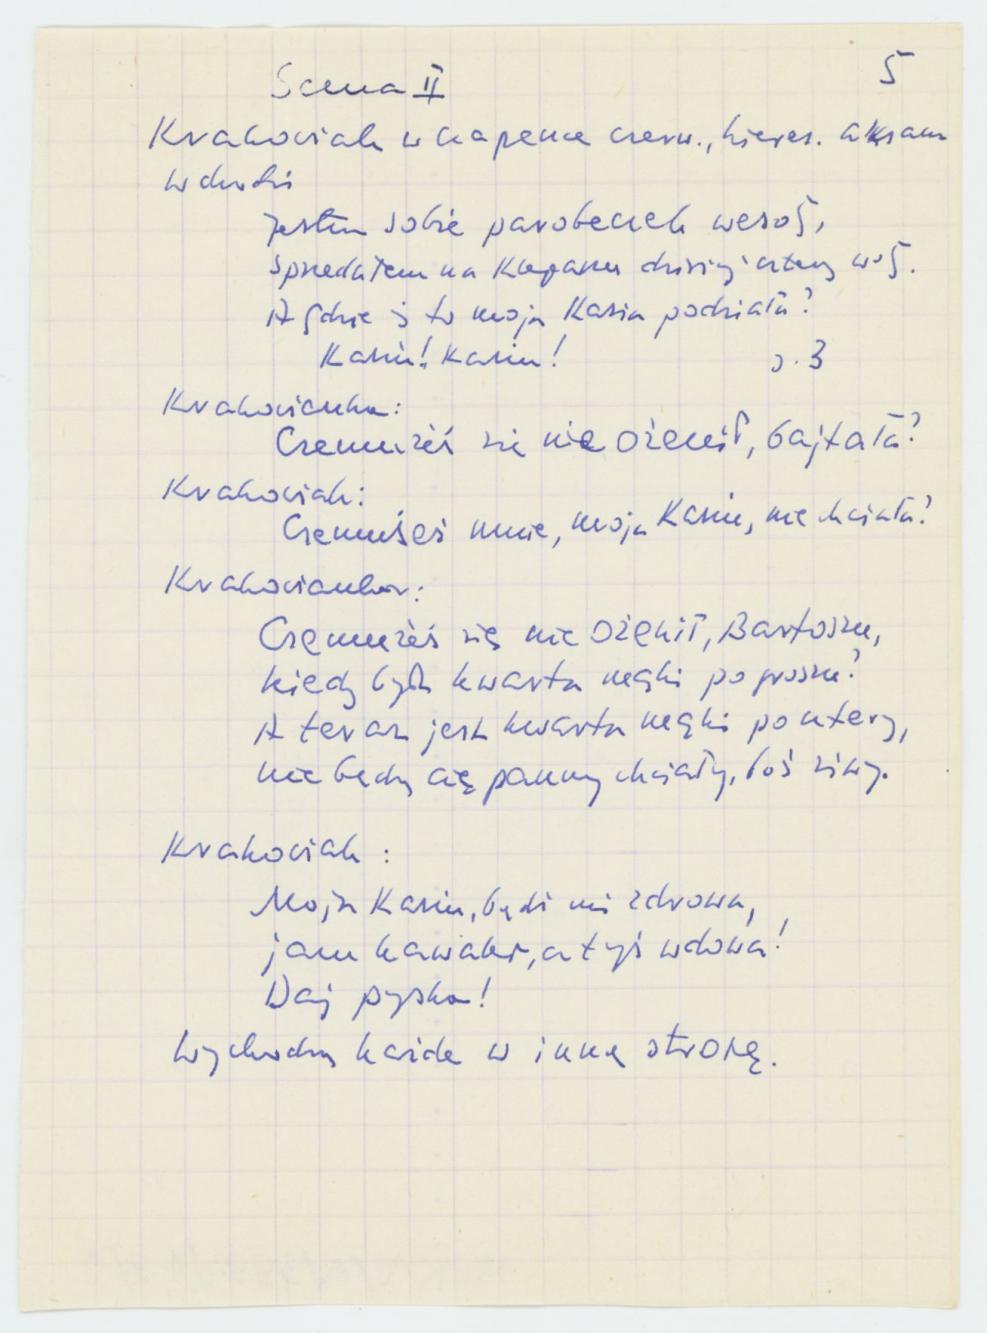 Scena II 5
Krakowiak w czapeczce czerw., kieres.
wchodzi
Jestem sobie parobeczek wesoły,
sprzedałem na Kleparzu dzisiaj cztery woły.
A gdzie ż to moja Kasia podziała?
Kasiu! Kasiu! s. 3
Krakowianka:
Czemużeś się nie ożenił, gajtała?
Krakowiak:
Czemużeś mnie, moja Kasiu, nie chciała?
Krakowianka:
Czemużeś się nie ożenił, Bartoszu,
kiedy była kwarta mąki po groszu?
A teraz jest kwarta mąki po cztery,
nie będą cię panny chciały, boś siwy.
Krakowiak:
Moja Kasiu, bądź mi zdrowa,
jam kawaler, a tyś wdowa!
Daj pyska!
Wychodzą każde w inną stronę.